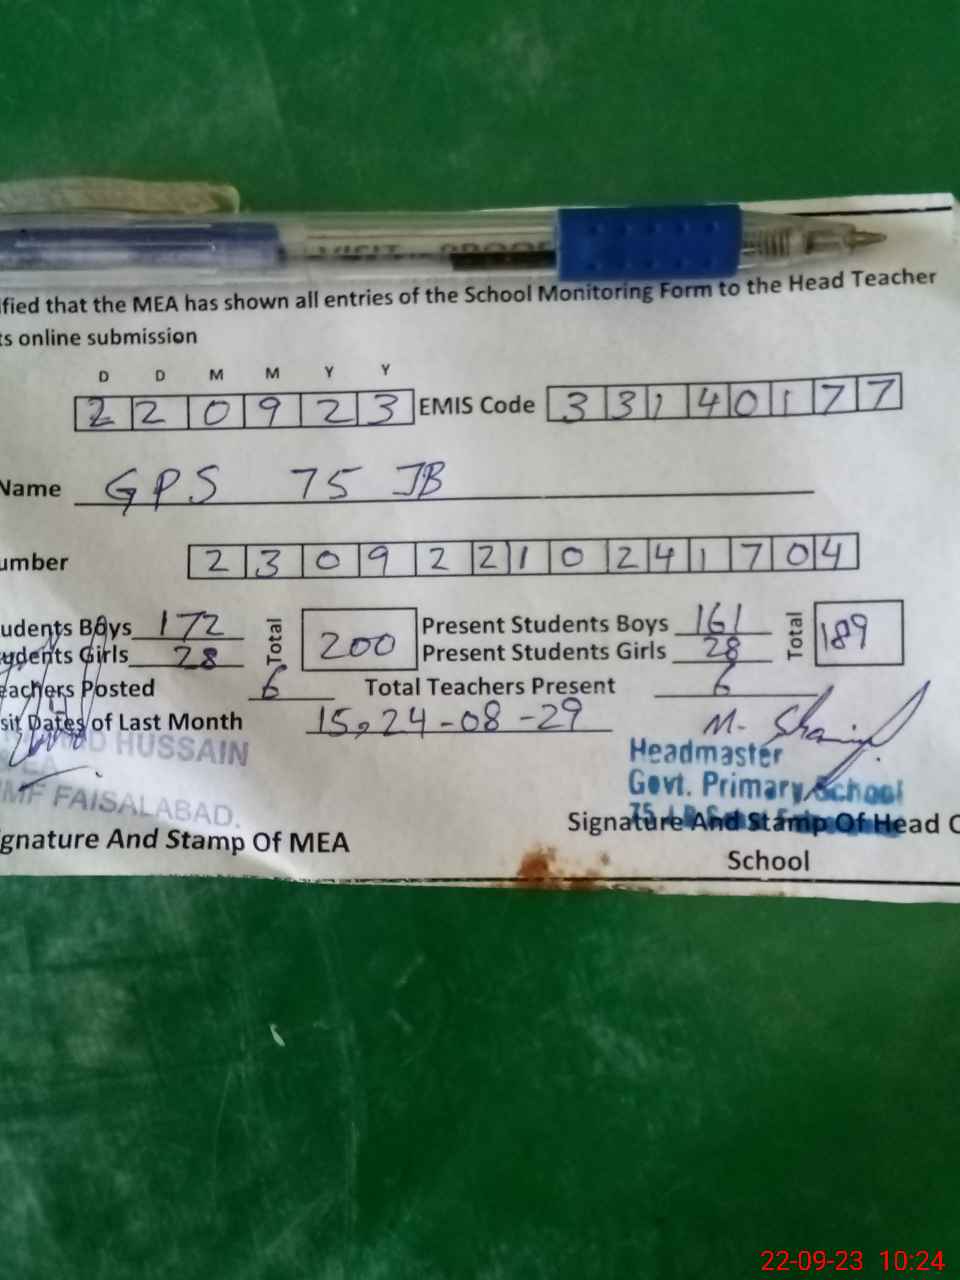 VISIT PROOF
ified that the MEA has shown all entries of the School Monitoring Form to the Head Teacher
ts online submission
D D M M Y Y
2 2 0 9 2 3 EMIS Code 3 3 1 4 0 1 7 7
Name GPS 75 JB
umber 2 3 0 9 2 2 1 0 2 4 1 7 0 4
udents Boys 172 Total 200 Present Students Boys 161 Total 189
udents Girls 28 Present Students Girls 28
eachers Posted 6 Total Teachers Present 6
sit Dates of Last Month 15,24-08-29
HUSSAIN
EA
MF FAISALABAD.
M.
Headmaster
Govt. Primary School
75 J.B
gnature And Stamp Of MEA
Signature And Stamp Of Head O
School
22-09-23 10:24